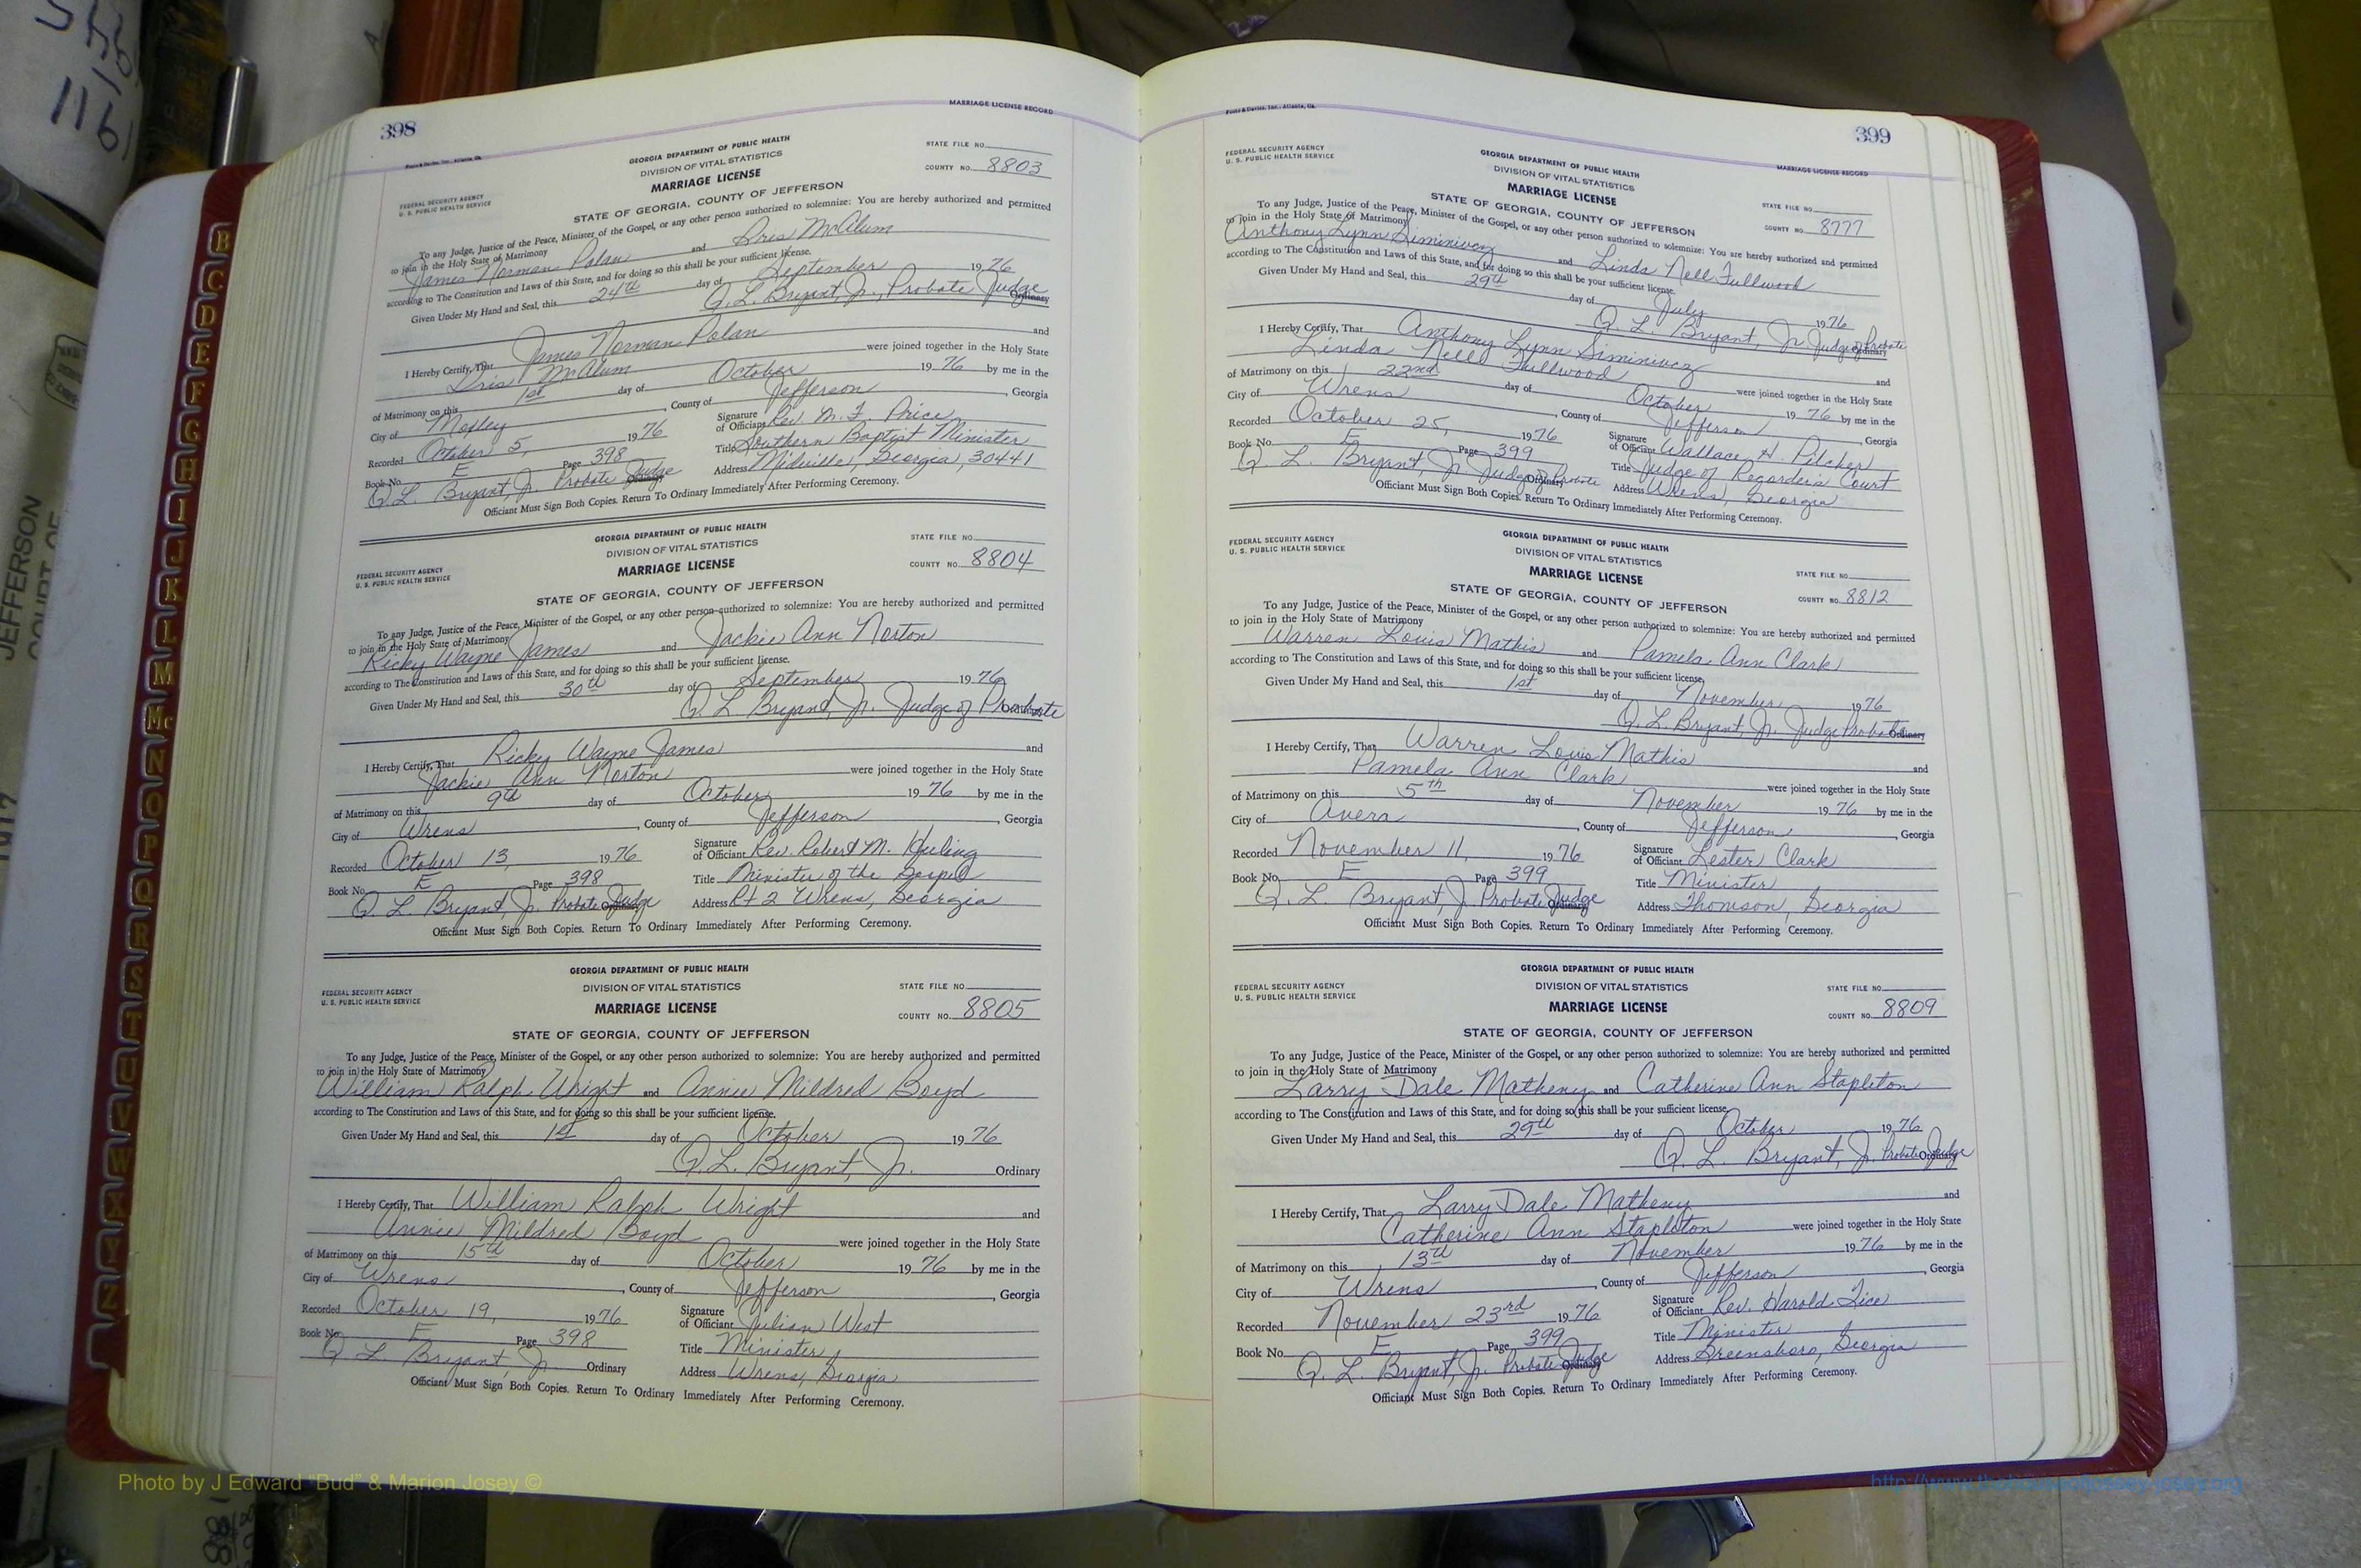 398
MARRIAGE LICENSE RECORD
GEORGIA DEPARTMENT OF PUBLIC HEALTH
DIVISION OF VITAL STATISTICS
MARRIAGE LICENSE
STATE OF GEORGIA, COUNTY OF JEFFERSON
FEDERAL SECURITY AGENCY
U. S. PUBLIC HEALTH SERVICE
STATE FILE NO.
COUNTY NO. 8803
To any Judge, Justice of the Peace, Minister of the Gospel, or any other person authorized to solemnize: You are hereby authorized and permitted
to join in the Holy State of Matrimony
James Norman Polan and McAlum
according to The Constitution and Laws of this State, and for doing so this shall be your sufficient license.
Given Under My Hand and Seal, this 24th day of September 1976
Q. L. Bryant, Jr., Probate Judge Ordinary
I Hereby Certify, That James Norman Polan and
McAlum were joined together in the Holy State
of Matrimony on this 1st day of October 1976 by me in the
City of , County of Jefferson , Georgia
Recorded October 5, 1976
Signature of Officiant Rev. M. F. Price
Book No. E Page 398
Title Southern Baptist Minister
Q. L. Bryant, Jr. Probate Judge Ordinary
Address Midville, Georgia, 30441
Officiant Must Sign Both Copies. Return To Ordinary Immediately After Performing Ceremony.
GEORGIA DEPARTMENT OF PUBLIC HEALTH
DIVISION OF VITAL STATISTICS
MARRIAGE LICENSE
STATE OF GEORGIA, COUNTY OF JEFFERSON
FEDERAL SECURITY AGENCY
U. S. PUBLIC HEALTH SERVICE
STATE FILE NO.
COUNTY NO. 8804
To any Judge, Justice of the Peace, Minister of the Gospel, or any other person authorized to solemnize: You are hereby authorized and permitted
to join in the Holy State of Matrimony
Ricky Wayne James and Jackie Ann Norton
according to The Constitution and Laws of this State, and for doing so this shall be your sufficient license.
Given Under My Hand and Seal, this 30th day of September 1976
Q. L. Bryant, Jr. Judge of Probate
I Hereby Certify, That Ricky Wayne James and
Jackie Ann Norton were joined together in the Holy State
of Matrimony on this 9th day of October 1976 by me in the
City of Wrens , County of Jefferson , Georgia
Recorded October 13, 1976
Signature of Officiant Rev. Robert M.
Book No. E Page 398
Title Minister of the Gospel
Q. L. Bryant, Jr. Probate Judge Ordinary
Address Rt 2 Wrens, Georgia
Officiant Must Sign Both Copies. Return To Ordinary Immediately After Performing Ceremony.
GEORGIA DEPARTMENT OF PUBLIC HEALTH
DIVISION OF VITAL STATISTICS
MARRIAGE LICENSE
STATE OF GEORGIA, COUNTY OF JEFFERSON
FEDERAL SECURITY AGENCY
U. S. PUBLIC HEALTH SERVICE
STATE FILE NO.
COUNTY NO. 8805
To any Judge, Justice of the Peace, Minister of the Gospel, or any other person authorized to solemnize: You are hereby authorized and permitted
to join in the Holy State of Matrimony
William Ralph Wright and Annie Mildred Boyd
according to The Constitution and Laws of this State, and for doing so this shall be your sufficient license.
Given Under My Hand and Seal, this 1st day of October 1976
Q. L. Bryant, Jr. Ordinary
I Hereby Certify, That William Ralph Wright and
Annie Mildred Boyd were joined together in the Holy State
of Matrimony on this 15th day of October 1976 by me in the
City of Wrens , County of Jefferson , Georgia
Recorded October 19, 1976
Signature of Officiant Julian West
Book No. E Page 398
Title Minister
Q. L. Bryant, Jr. Ordinary
Address Wrens, Georgia
Officiant Must Sign Both Copies. Return To Ordinary Immediately After Performing Ceremony.
399
MARRIAGE LICENSE RECORD
FEDERAL SECURITY AGENCY
U. S. PUBLIC HEALTH SERVICE
GEORGIA DEPARTMENT OF PUBLIC HEALTH
DIVISION OF VITAL STATISTICS
MARRIAGE LICENSE
STATE OF GEORGIA, COUNTY OF JEFFERSON
STATE FILE NO.
COUNTY NO. 8777
To any Judge, Justice of the Peace, Minister of the Gospel, or any other person authorized to solemnize: You are hereby authorized and permitted
to join in the Holy State of Matrimony
Anthony Lynn Siminivcz and Linda Nell Fullwood
according to The Constitution and Laws of this State, and for doing so this shall be your sufficient license.
Given Under My Hand and Seal, this 29th day of July 1976
Q. L. Bryant, Jr. Judge of Probate Ordinary
I Hereby Certify, That Anthony Lynn Siminivcz and
Linda Nell Fullwood were joined together in the Holy State
of Matrimony on this 22nd day of October 1976 by me in the
City of Wrens , County of Jefferson , Georgia
Recorded October 25, 1976
Signature of Officiant Wallace H. Pilcher
Book No. E Page 399
Title Judge of Recorder's Court
Q. L. Bryant, Jr. Judge of Probate Ordinary
Address Wrens, Georgia
Officiant Must Sign Both Copies. Return To Ordinary Immediately After Performing Ceremony.
FEDERAL SECURITY AGENCY
U. S. PUBLIC HEALTH SERVICE
GEORGIA DEPARTMENT OF PUBLIC HEALTH
DIVISION OF VITAL STATISTICS
MARRIAGE LICENSE
STATE OF GEORGIA, COUNTY OF JEFFERSON
STATE FILE NO.
COUNTY NO. 8812
To any Judge, Justice of the Peace, Minister of the Gospel, or any other person authorized to solemnize: You are hereby authorized and permitted
to join in the Holy State of Matrimony
Warren Louis Mathis and Pamela Ann Clark
according to The Constitution and Laws of this State, and for doing so this shall be your sufficient license.
Given Under My Hand and Seal, this 1st day of November 1976
Q. L. Bryant, Jr. Judge Probate Ordinary
I Hereby Certify, That Warren Louis Mathis and
Pamela Ann Clark were joined together in the Holy State
of Matrimony on this 5th day of November 1976 by me in the
City of Avera , County of Jefferson , Georgia
Recorded November 11, 1976
Signature of Officiant Lester Clark
Book No. E Page 399
Title Minister
Q. L. Bryant, Jr. Probate Judge Ordinary
Address Thomson, Georgia
Officiant Must Sign Both Copies. Return To Ordinary Immediately After Performing Ceremony.
GEORGIA DEPARTMENT OF PUBLIC HEALTH
DIVISION OF VITAL STATISTICS
MARRIAGE LICENSE
STATE OF GEORGIA, COUNTY OF JEFFERSON
FEDERAL SECURITY AGENCY
U. S. PUBLIC HEALTH SERVICE
STATE FILE NO.
COUNTY NO. 8809
To any Judge, Justice of the Peace, Minister of the Gospel, or any other person authorized to solemnize: You are hereby authorized and permitted
to join in the Holy State of Matrimony
Larry Dale Matheny and Catherine Ann Stapleton
according to The Constitution and Laws of this State, and for doing so this shall be your sufficient license.
Given Under My Hand and Seal, this 29th day of October 1976
Q. L. Bryant, Jr. Probate Judge Ordinary
I Hereby Certify, That Larry Dale Matheny and
Catherine Ann Stapleton were joined together in the Holy State
of Matrimony on this 13th day of November 1976 by me in the
City of Wrens , County of Jefferson , Georgia
Recorded November 23rd 1976
Signature of Officiant Rev. Harold
Book No. E Page 399
Title Minister
Q. L. Bryant, Jr. Probate Judge Ordinary
Address Greensboro, Georgia
Officiant Must Sign Both Copies. Return To Ordinary Immediately After Performing Ceremony.
B
C
D
E
F
G
H
I
J
K
L
M
Mc
N
O
P
Q
R
S
T
U
V
W
X
Y
Z
JEFFERSON
COURT OF
Photo by J Edward "Bud" & Marion Josey ©